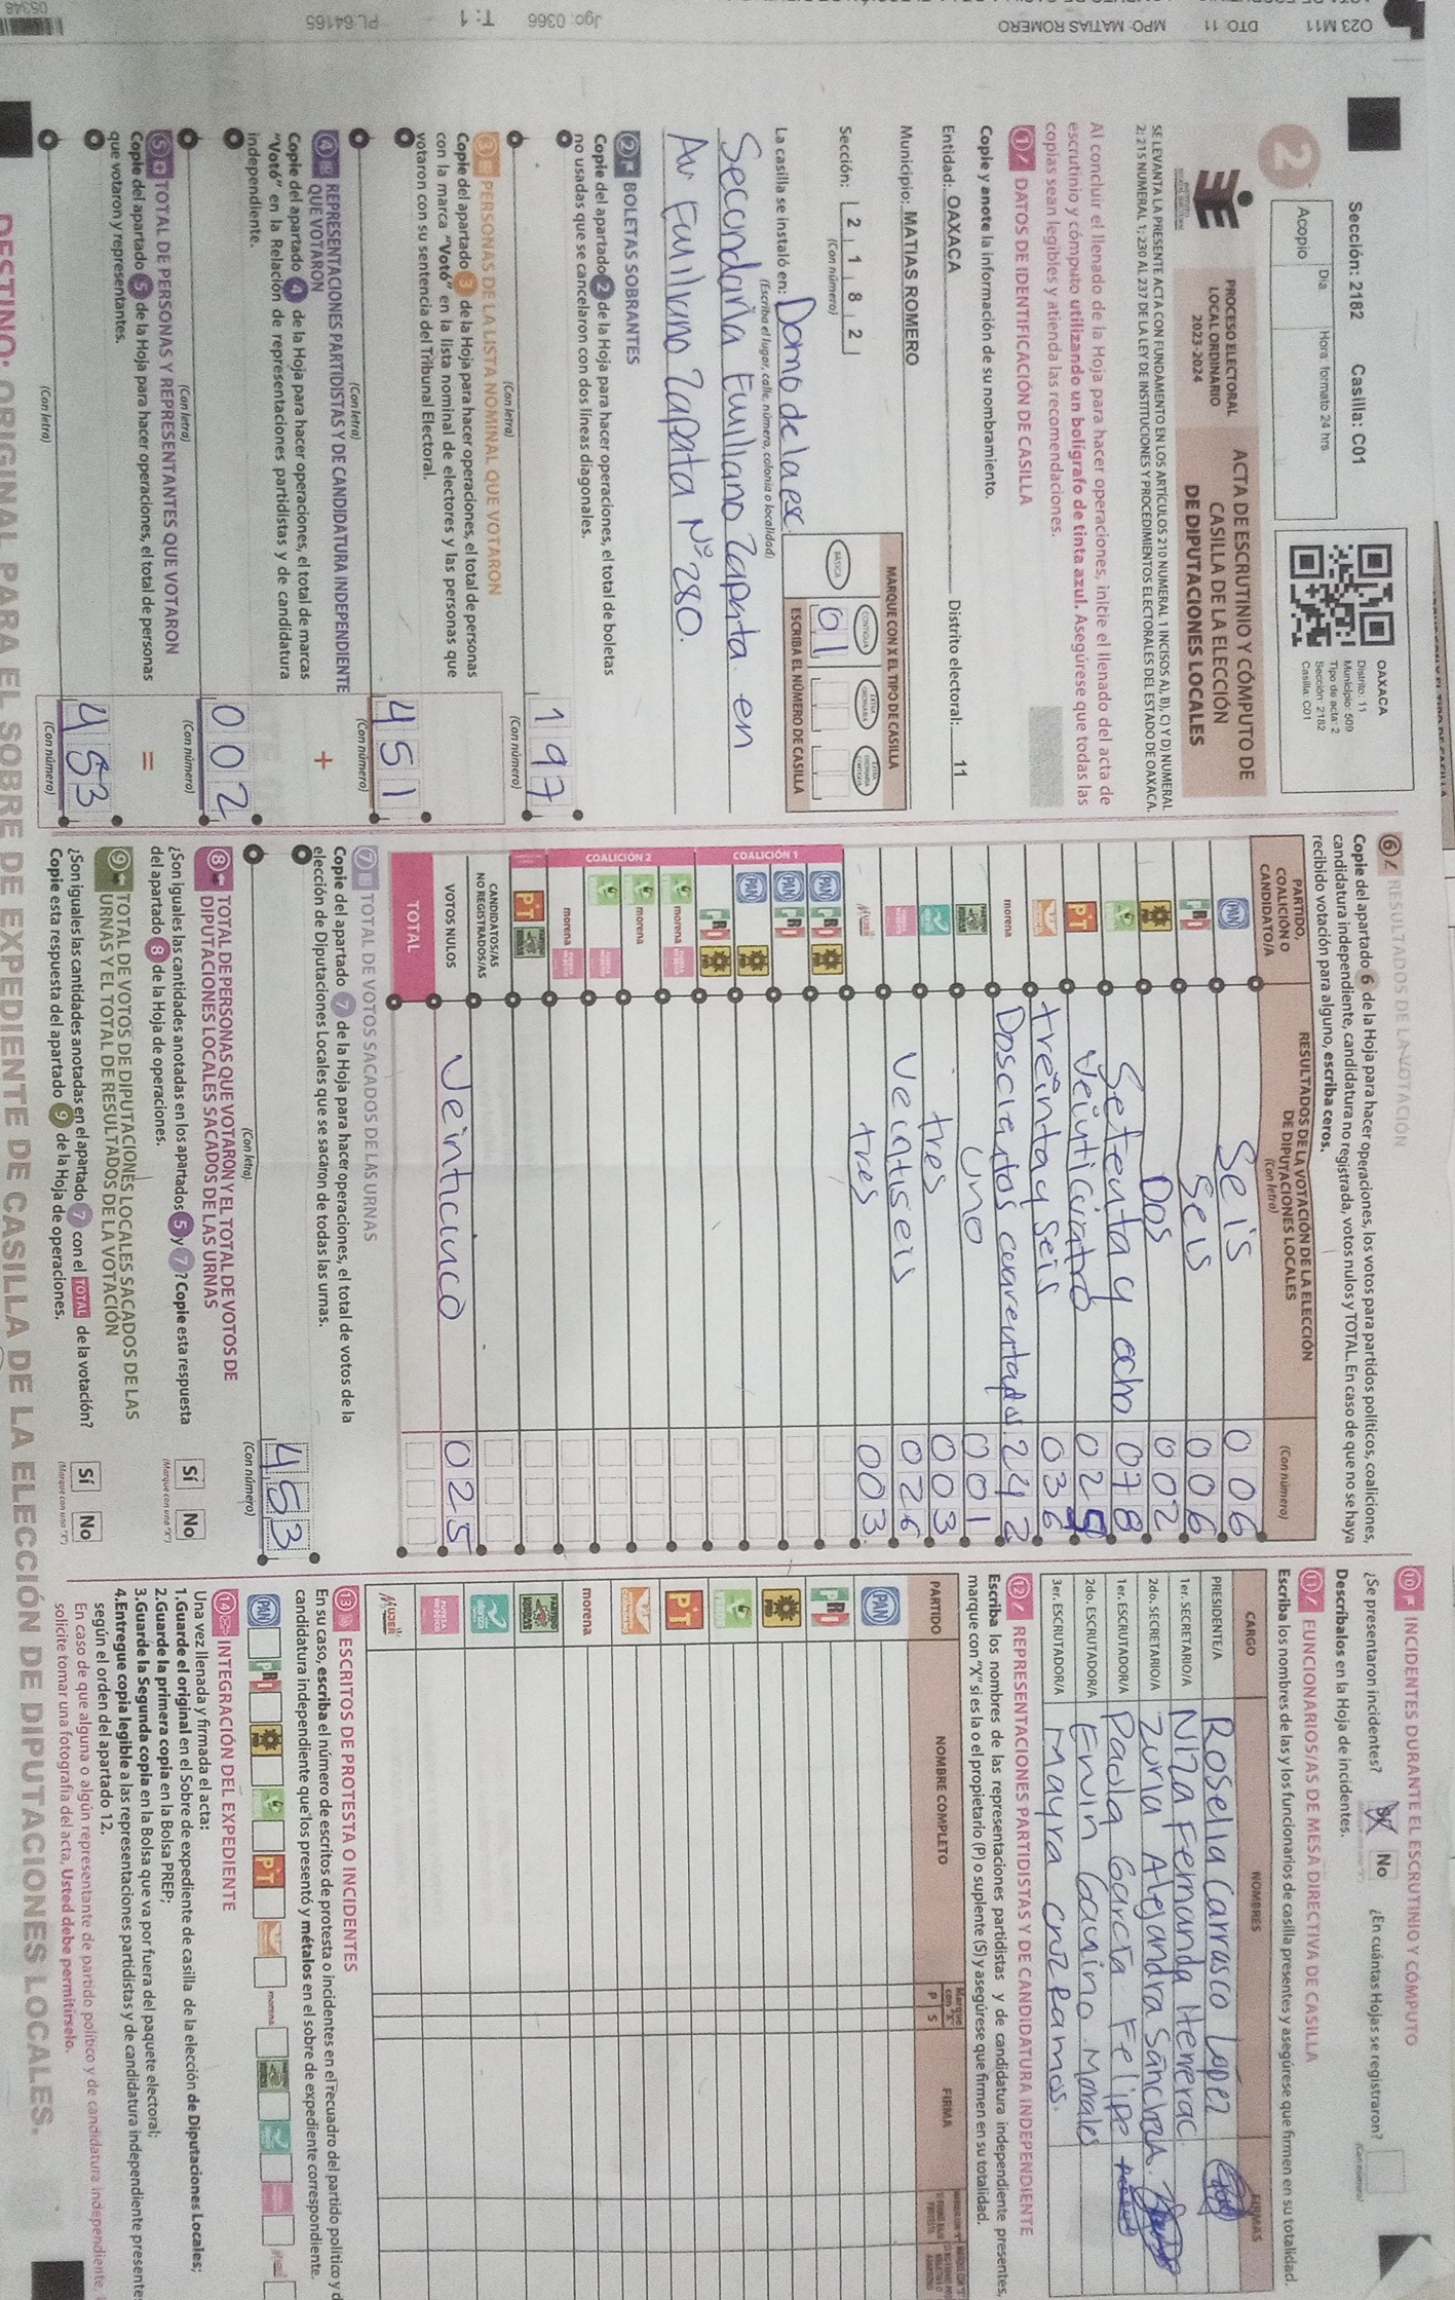 O23 M11 DTO: 11 MPO: MATIAS ROMERO Jgo: 0366 T: 1 PL.64165
05348
Sección: 2182 Casilla: C01
Día Hora formato 24 hrs
Acopio
2
OAXACA
Distrito: 11
Municipio: 509
Tipo de acta: 2
Sección: 2182
Casilla: C01
PROCESO ELECTORAL
LOCAL ORDINARIO
2023-2024
ACTA DE ESCRUTINIO Y CÓMPUTO DE
CASILLA DE LA ELECCIÓN
DE DIPUTACIONES LOCALES
SE LEVANTA LA PRESENTE ACTA CON FUNDAMENTO EN LOS ARTÍCULOS 210 NUMERAL 1 INCISOS A), B), C) Y D) NUMERAL
2; 215 NUMERAL 1; 230 AL 237 DE LA LEY DE INSTITUCIONES Y PROCEDIMIENTOS ELECTORALES DEL ESTADO DE OAXACA.
Al concluir el llenado de la Hoja para hacer operaciones, inicie el llenado del acta de
escrutinio y cómputo utilizando un bolígrafo de tinta azul. Asegúrese que todas las
copias sean legibles y atienda las recomendaciones.
1 DATOS DE IDENTIFICACIÓN DE CASILLA
Copie y anote la información de su nombramiento.
Entidad: OAXACA Distrito electoral: 11
Municipio: MATIAS ROMERO
Sección: 2 1 8 2
(Con número)
MARQUE CON X EL TIPO DE CASILLA
BÁSICA CONTIGUA
01
ESCRIBA EL NÚMERO DE CASILLA
La casilla se instaló en: Domo de la esc.
(Escriba el lugar, calle, número, colonia o localidad)
Secundaria Emiliano Zapata en
Av Emiliano Zapata N° 280.
2 BOLETAS SOBRANTES
Copie del apartado 2 de la Hoja para hacer operaciones, el total de boletas
no usadas que se cancelaron con dos líneas diagonales.
197
(Con letra) (Con número)
3 PERSONAS DE LA LISTA NOMINAL QUE VOTARON
Copie del apartado 3 de la Hoja para hacer operaciones, el total de personas
con la marca "Votó" en la lista nominal de electores y las personas que
votaron con su sentencia del Tribunal Electoral.
451
(Con letra) (Con número)
4 REPRESENTACIONES PARTIDISTAS Y DE CANDIDATURA INDEPENDIENTE
QUE VOTARON +
Copie del apartado 4 de la Hoja para hacer operaciones, el total de marcas
"Votó" en la Relación de representaciones partidistas y de candidatura
independiente.
002
(Con letra) (Con número)
5 TOTAL DE PERSONAS Y REPRESENTANTES QUE VOTARON =
Copie del apartado 5 de la Hoja para hacer operaciones, el total de personas
que votaron y representantes.
453
(Con letra) (Con número)
6 RESULTADOS DE LA VOTACIÓN
Copie del apartado 6 de la Hoja para hacer operaciones, los votos para partidos políticos, coaliciones,
candidatura independiente, candidatura no registrada, votos nulos y TOTAL. En caso de que no se haya
recibido votación para alguno, escriba ceros.
PARTIDO, COALICIÓN O CANDIDATO/A
RESULTADOS DE LA VOTACIÓN DE LA ELECCIÓN
DE DIPUTACIONES LOCALES
(Con letra) (Con número)
PAN Seis 006
PRI Seis 006
PRD Dos 002
Setenta y ocho 078
PT Veinticuatro
treinta y seis 036
morena Doscientos cuarenta dos 242
Uno 001
tres 003
Veintiseis 026
MUJER tres 003
COALICIÓN 1
PAN PRI PRD
PAN PRI
PAN PRD
PRI PRD
COALICIÓN 2
morena
morena
morena
PT
CANDIDATOS/AS
NO REGISTRADOS/AS
VOTOS NULOS Veinticinco 025
TOTAL
7 TOTAL DE VOTOS SACADOS DE LAS URNAS
Copie del apartado 7 de la Hoja para hacer operaciones, el total de votos de la
elección de Diputaciones Locales que se sacaron de todas las urnas.
453
(Con letra) (Con número)
8 TOTAL DE PERSONAS QUE VOTARON Y EL TOTAL DE VOTOS DE
DIPUTACIONES LOCALES SACADOS DE LAS URNAS
¿Son iguales las cantidades anotadas en los apartados 5 y 7? Copie esta respuesta
del apartado 8 de la Hoja de operaciones.
Sí No
(Marque con una "X")
9 TOTAL DE VOTOS DE DIPUTACIONES LOCALES SACADOS DE LAS
URNAS Y EL TOTAL DE RESULTADOS DE LA VOTACIÓN
¿Son iguales las cantidades anotadas en el apartado 7 con el TOTAL de la votación?
Copie esta respuesta del apartado 9 de la Hoja de operaciones.
Sí No
(Marque con una "X")
10 INCIDENTES DURANTE EL ESCRUTINIO Y CÓMPUTO
¿Se presentaron incidentes? No ¿En cuántas Hojas se registraron?
(Con número)
Descríbalos en la Hoja de incidentes.
11 FUNCIONARIOS/AS DE MESA DIRECTIVA DE CASILLA
Escriba los nombres de las y los funcionarios de casilla presentes y asegúrese que firmen en su totalidad.
CARGO NOMBRES FIRMAS
PRESIDENTE/A Roselia Carrasco López
1er. SECRETARIO/A Niza Fernanda Herrera C
2do. SECRETARIO/A Zuria Alejandra Sánchez
1er. ESCRUTADOR/A Paola García Felipe
2do. ESCRUTADOR/A Erwin Gauino Morales
3er. ESCRUTADOR/A Mayra Cruz Ramos.
12 REPRESENTACIONES PARTIDISTAS Y DE CANDIDATURA INDEPENDIENTE
Escriba los nombres de las representaciones partidistas y de candidatura independiente presentes,
marque con "X" si es la o el propietario (P) o suplente (S) y asegúrese que firmen en su totalidad.
PARTIDO NOMBRE COMPLETO Marque con "X" P S FIRMA
PAN
PRI
PRD
PT
morena
MUJER
13 ESCRITOS DE PROTESTA O INCIDENTES
En su caso, escriba el número de escritos de protesta o incidentes en el recuadro del partido político y
candidatura independiente que los presentó y métalos en el sobre de expediente correspondiente.
PAN PRI PRD PT morena
14 INTEGRACIÓN DEL EXPEDIENTE
Una vez llenada y firmada el acta:
1.Guarde el original en el Sobre de expediente de casilla de la elección de Diputaciones Locales;
2.Guarde la primera copia en la Bolsa PREP;
3.Guarde la Segunda copia en la Bolsa que va por fuera del paquete electoral;
4.Entregue copia legible a las representaciones partidistas y de candidatura independiente presente
según el orden del apartado 12.
En caso de que alguna o algún representante de partido político y de candidatura independiente,
solicite tomar una fotografía del acta, Usted debe permitírselo.
DESTINO: ORIGINAL PARA EL SOBRE DE EXPEDIENTE DE CASILLA DE LA ELECCIÓN DE DIPUTACIONES LOCALES.